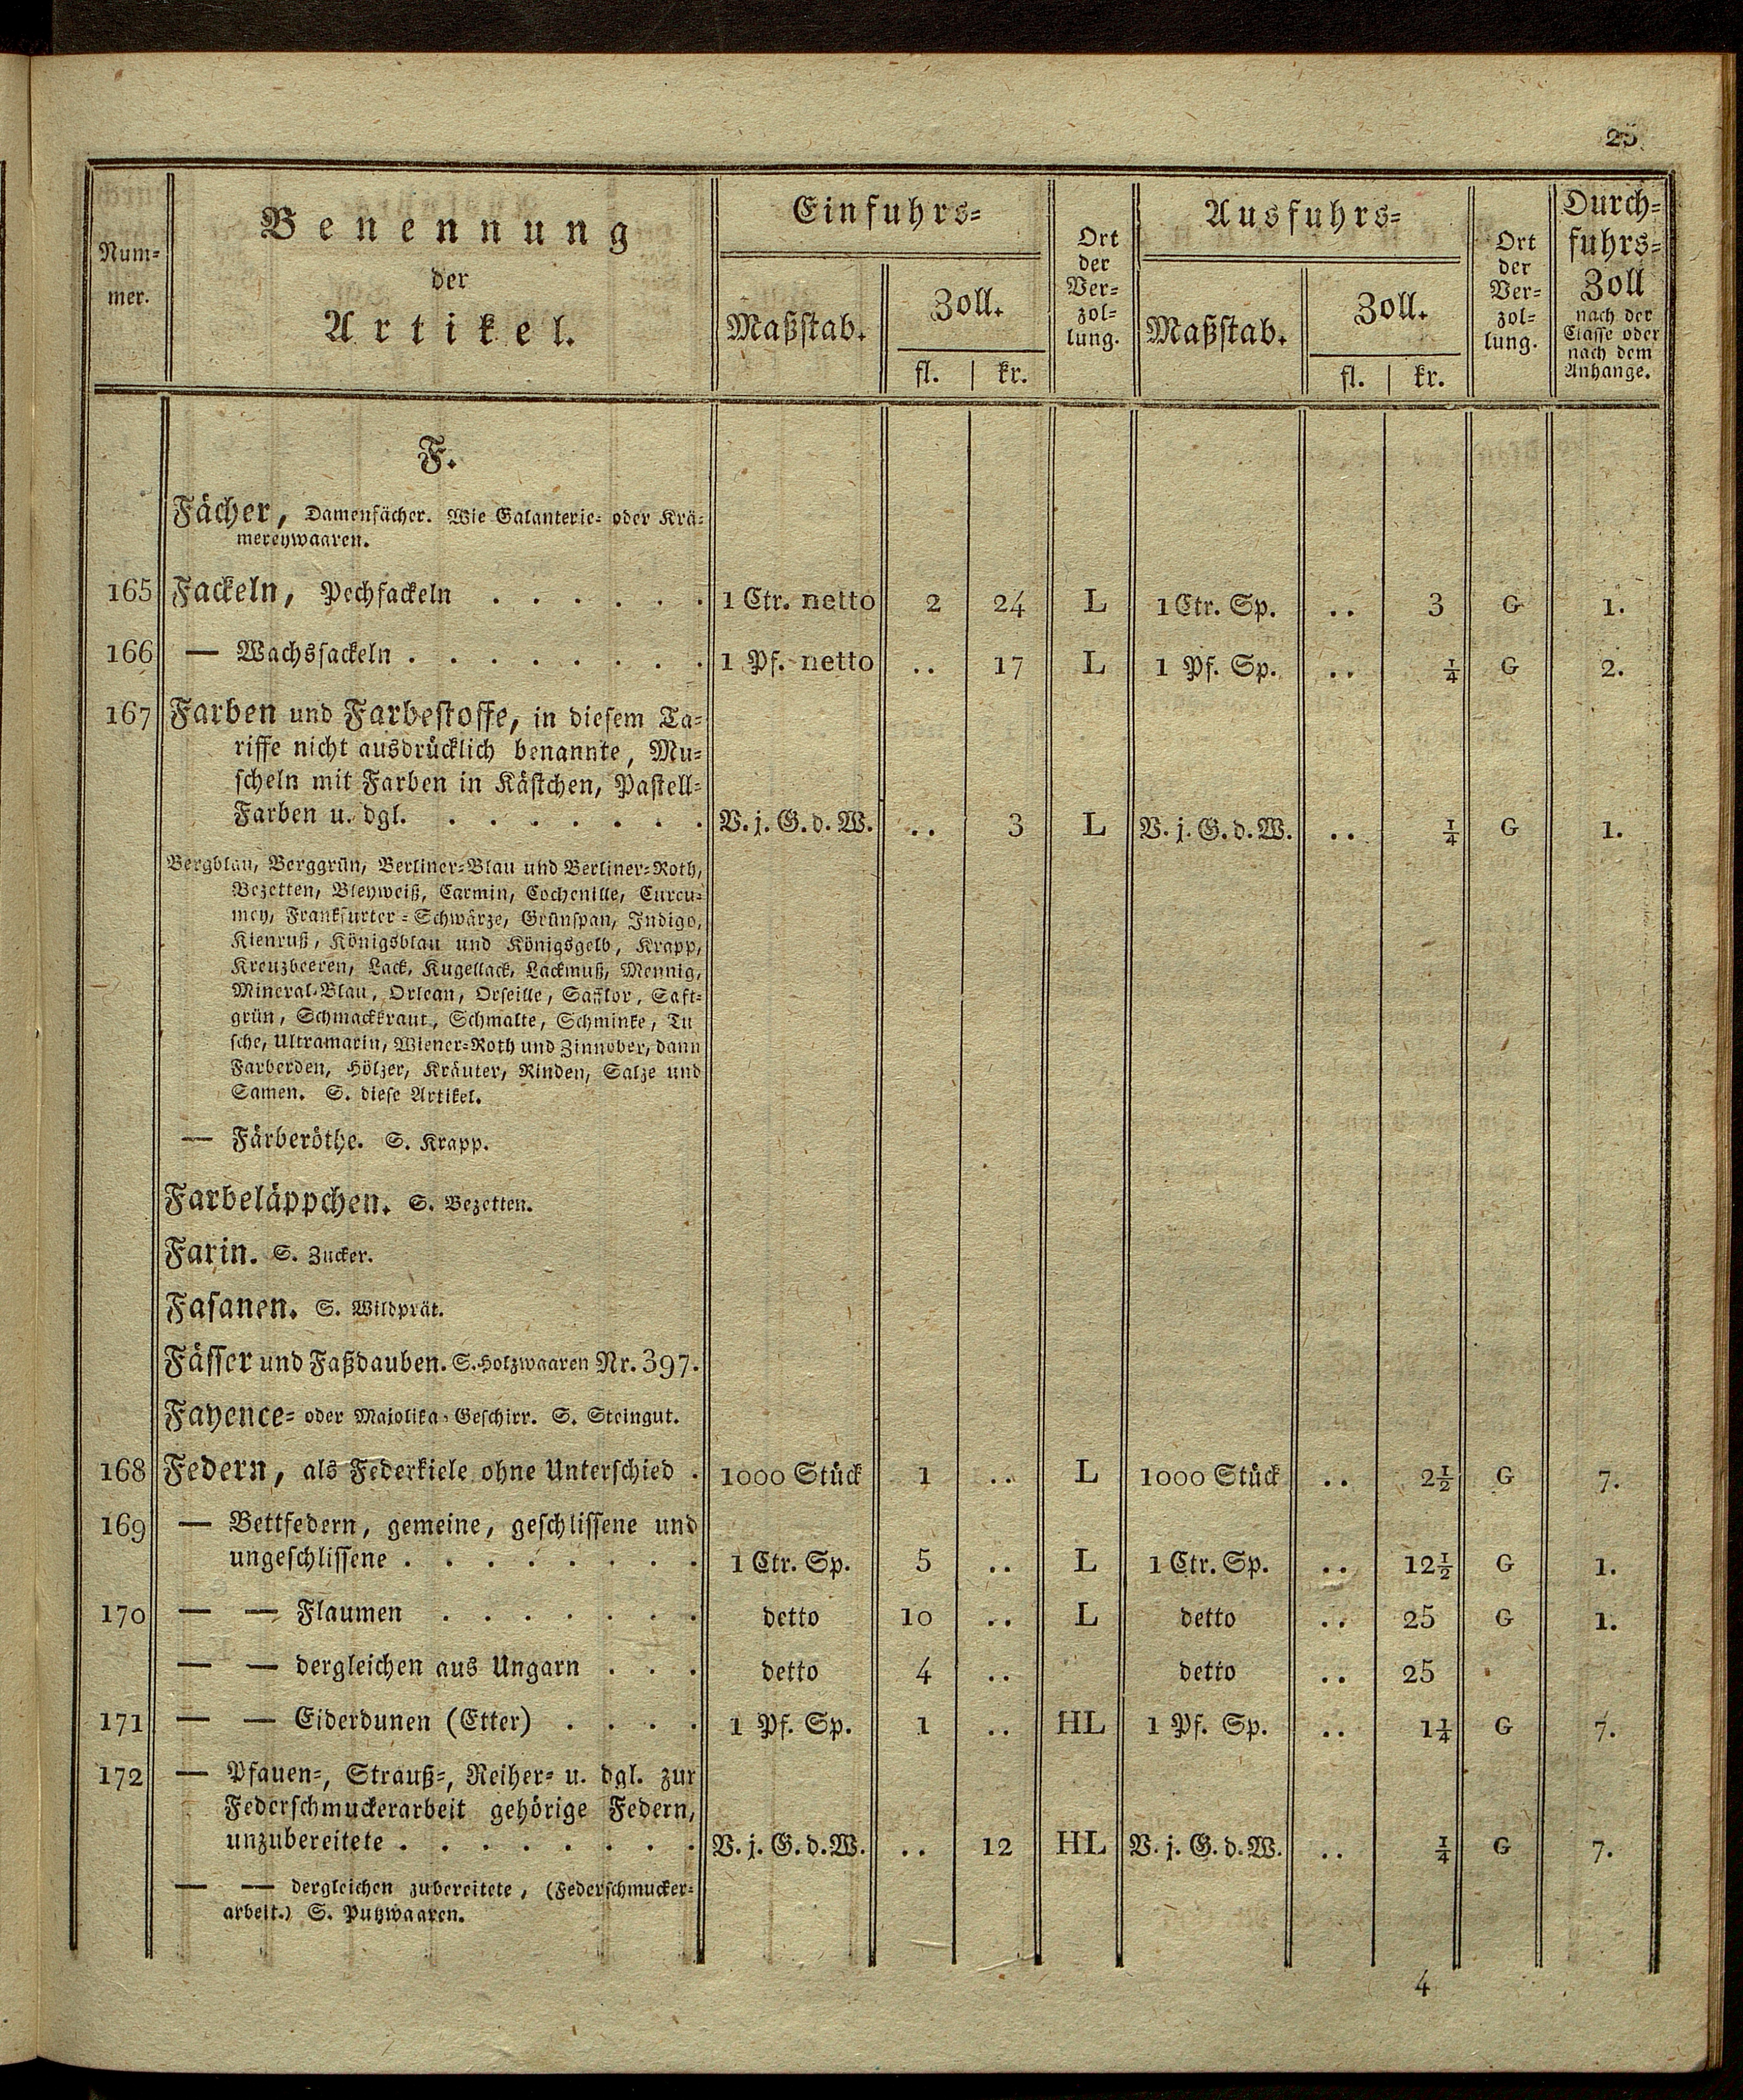 25
Num-
mer.
Benennung
der
Artikel.
Einfuhrs-
Maßstab.
Zoll.
fl. | kr.
Ort
der
Ver-
zol-
lung.
Ausfuhrs-
Maßstab.
Zoll.
fl. | kr.
Ort
der
Ver-
zol-
lung.
Durch-
fuhrs-
Zoll
nach der
Classe oder
nach dem
Anhange.
F.
Fächer, Damenfächer. Wie Galanterie- oder Krä-
mereywaaren.
165 Fackeln, Pechfackeln . . . . . . 1 Ctr. netto 2 24 L 1 Ctr. Sp. .. 3 G 1.
166 — Wachsfackeln . . . . . . . . 1 Pf. netto .. 17 L 1 Pf. Sp. .. ¼ G 2.
167 Farben und Farbestoffe, in diesem Ta-
riffe nicht ausdrücklich benannte, Mu-
scheln mit Farben in Kästchen, Pastell-
Farben u. dgl. . . . . . . . V. j. G. d. W. .. 3 L V. j. G. d. W. .. ¼ G 1.
Bergblau, Berggrün, Berliner-Blau und Berliner-Roth,
Bezetten, Bleyweiß, Carmin, Cochenille, Curcu-
mey, Frankfurter-Schwärze, Grünspan, Indigo,
Kienruß, Königsblau und Königsgelb, Krapp,
Kreuzbeeren, Lack, Kugellack, Lackmuß, Mennig,
Mineral-Blau, Orlean, Orseille, Safflor, Saft-
grün, Schmackkraut, Schmalte, Schminke, Tu
sche, Ultramarin, Wiener-Roth und Zinnober, dann
Farberden, Hölzer, Kräuter, Rinden, Salze und
Samen. S. diese Artikel.
— Färberöthe. S. Krapp.
Farbeläppchen. S. Bezetten.
Farin. S. Zucker.
Fasanen. S. Wildprät.
Fässer und Faßdauben. S. Holzwaaren Nr. 397.
Fayence- oder Majolika-Geschirr. S. Steingut.
168 Federn, als Federkiele ohne Unterschied . 1000 Stück 1 .. L 1000 Stück .. 2½ G 7.
169 — Bettfedern, gemeine, geschlissene und
ungeschlissene . . . . . . . . 1 Ctr. Sp. 5 .. L 1 Ctr. Sp. .. 12½ G 1.
170 — — Flaumen . . . . . . . detto 10 .. L detto .. 25 G 1.
— — dergleichen aus Ungarn . . . detto 4 .. detto .. 25
171 — — Eiderdunen (Etter) . . . . 1 Pf. Sp. 1 .. HL 1 Pf. Sp. .. 1¼ G 7.
172 — Pfauen-, Strauß-, Reiher- u. dgl. zur
Federschmuckerarbeit gehörige Federn,
unzubereitete . . . . . . . . V. j. G. d. W. .. 12 HL V. j. G. d. W. .. ¼ G 7.
— — dergleichen zubereitete, (Federschmucker-
arbeit.) S. Putzwaaren.
4